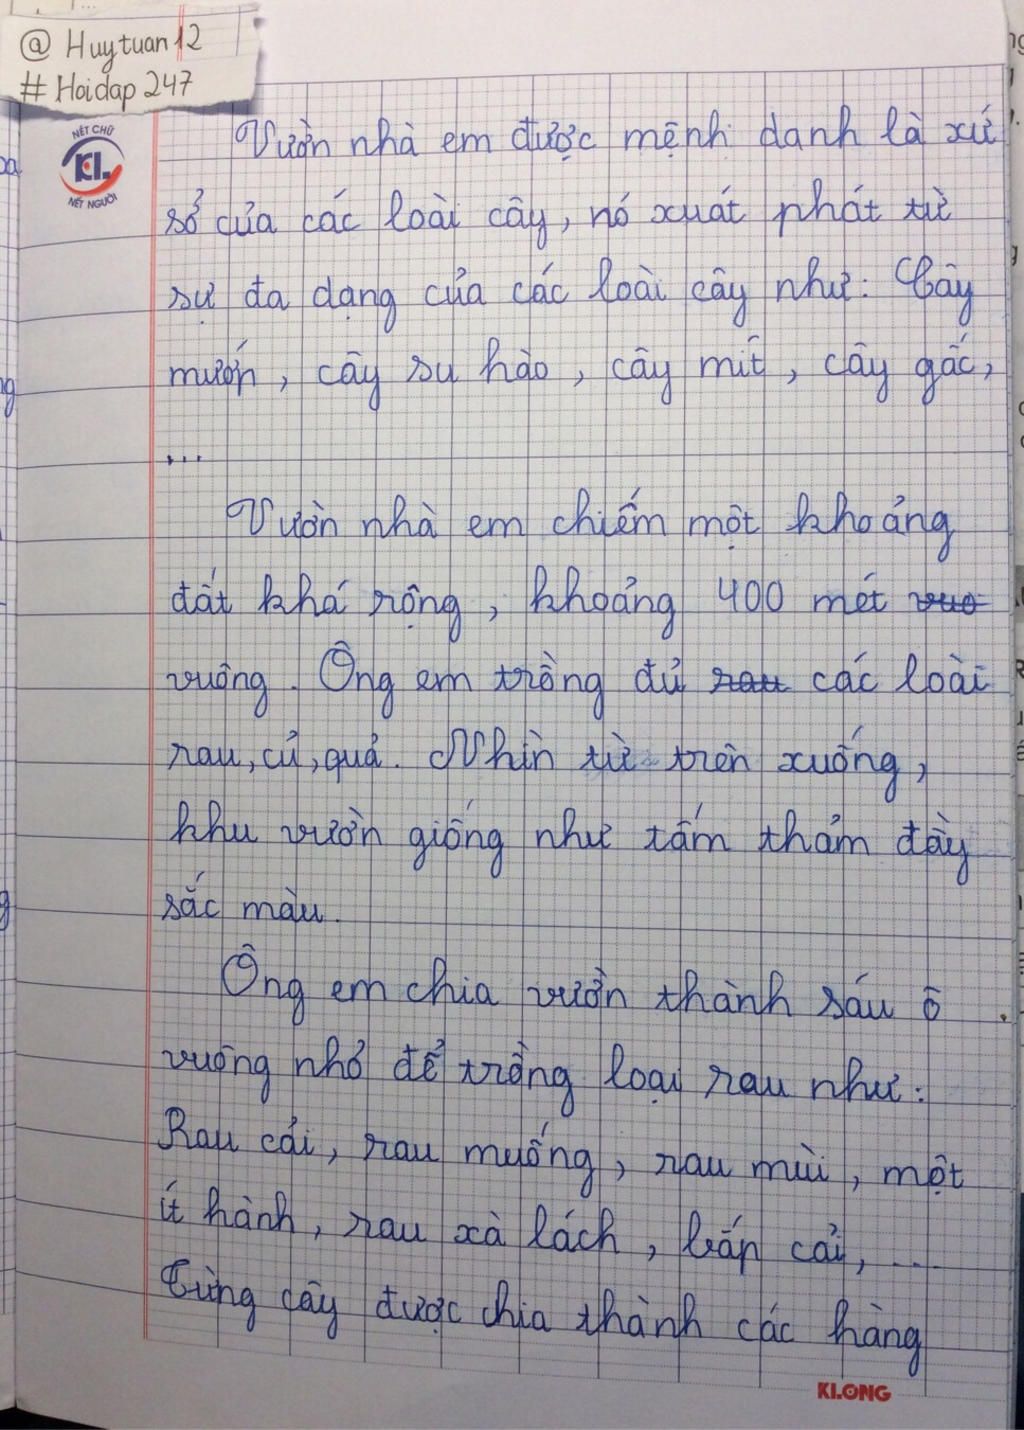 @ Huytuan12
# Hoidap 247
NÉT CHỮ
KL
NẾT NGƯỜI
Vườn nhà em được mệnh danh là xứ
sở của các loài cây, nó xuất phát từ
sự đa dạng của các loài cây như: Cây
mướp, cây su hào, cây mít, cây gấc,
...
Vườn nhà em chiếm một khoảng
đất khá rộng, khoảng 400 mét vuô
vuông. Ông em trồng đủ rau các loài
rau, củ, quả. Nhìn từ trên xuống,
khu vườn giống như tấm thảm đầy
sắc màu.
Ông em chia vườn thành sáu ô
vuông nhỏ để trồng loại rau như:
Rau cải, rau muống, rau mùi, một
ít hành, rau xà lách, bắp cải, ....
Từng cây được chia thành các hàng
KLONG